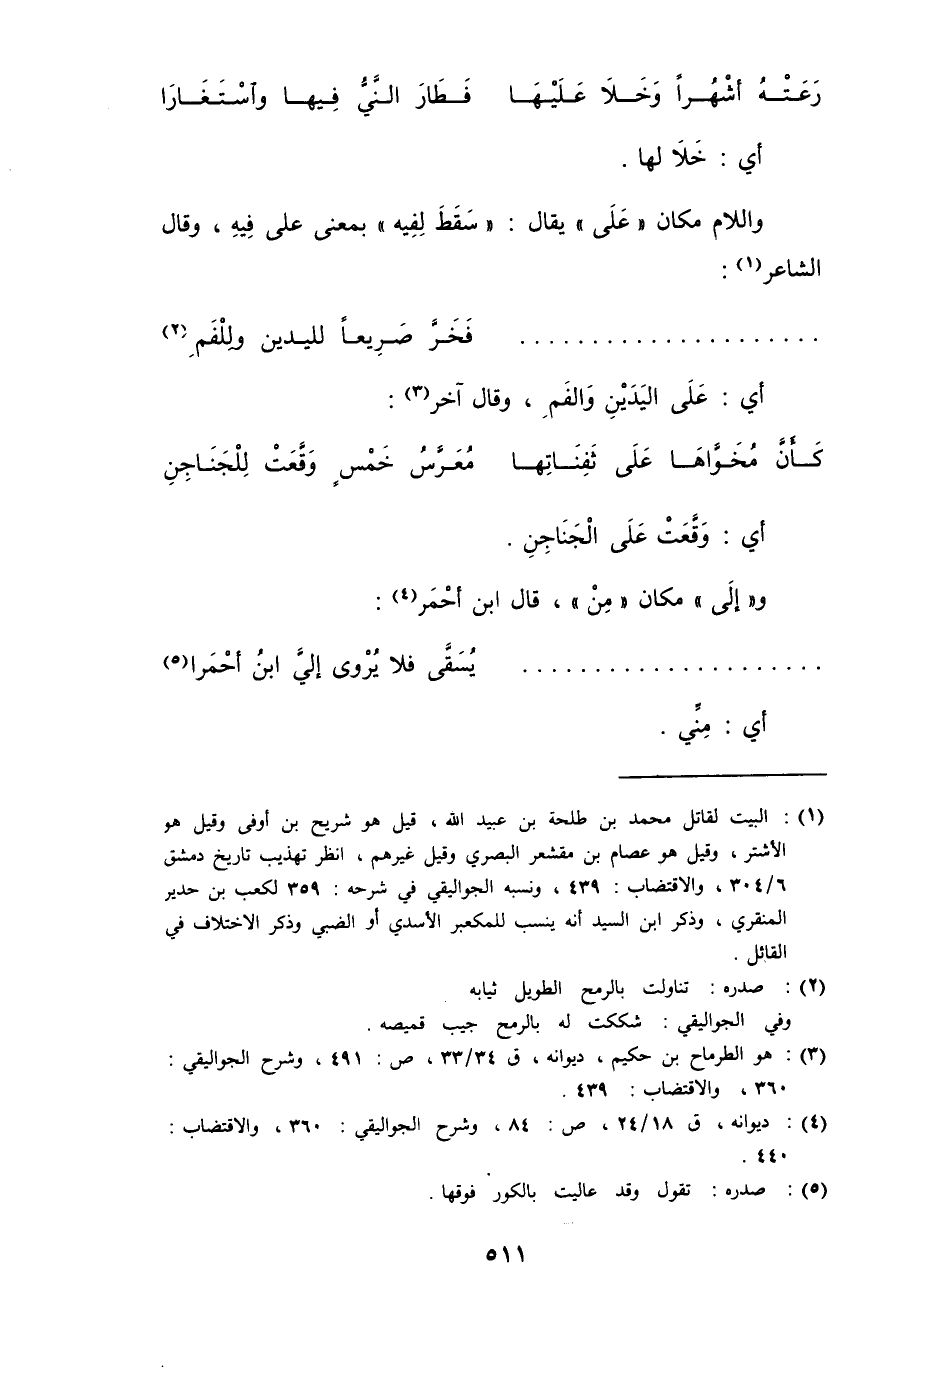 رَعَتْهُ أشْهُراً وَخَلَا عَلَيْهَا فَطَارَ النَّيُّ فِيها وآسْتَغَارَا
أي : خَلَا لها .
واللام مكان « عَلَى » يقال : « سَقَطَ لِفِيه » بمعنى على فِيهِ ، وقال
الشاعر(١) :
. . . . . . . . . . . . . . . . . . . . . فَخَرَّ صَرِيعاً لليدين ولِلْفَمِ(٢)
أي : عَلَى اليَدَيْنِ وَالفَمِ ، وقال آخر(٣) :
كَأَنَّ مُخَوَّاهَا عَلَى ثَفِنَاتِها مُعَرَّسُ خَمْسٍ وَقَّعَتْ لِلْجَنَاجِنِ
أي : وَقَّعَتْ عَلَى الْجَنَاجِنِ .
و« إلَى » مكان « مِنْ » ، قال ابن أحْمَر(٤) :
. . . . . . . . . . . . . . . . . . . . . يُسَقَّى فلا يُرْوى إليَّ ابنُ أحْمَرا(٥)
أي : مِنِّي .
(١) : البيت لقاتل محمد بن طلحة بن عبيد الله ، قيل هو شريح بن أوفى وقيل هو
الأشتر ، وقيل هو عصام بن مقشعر البصري وقيل غيرهم ، انظر تهذيب تاريخ دمشق
٣٠٤/٦ ، والاقتضاب : ٤٣٩ ، ونسبه الجواليقي في شرحه : ٣٥٩ لكعب بن حدير
المنقري ، وذكر ابن السيد أنه ينسب للمكعبر الأسدي أو الضبي وذكر الاختلاف في
القائل .
(٢) : صدره : تناولت بالرمح الطويل ثيابه
وفي الجواليقي : شككت له بالرمح جيب قميصه .
(٣) : هو الطرماح بن حكيم ، ديوانه ، ق ٣٣/٣٤ ، ص : ٤٩١ ، وشرح الجواليقي :
٣٦٠ ، والاقتضاب : ٤٣٩ .
(٤) : ديوانه ، ق ٢٤/١٨ ، ص : ٨٤ ، وشرح الجواليقي : ٣٦٠ ، والاقتضاب :
٤٤٠ .
(٥) : صدره : تقول وقد عاليت بالكور فوقها .
٥١١